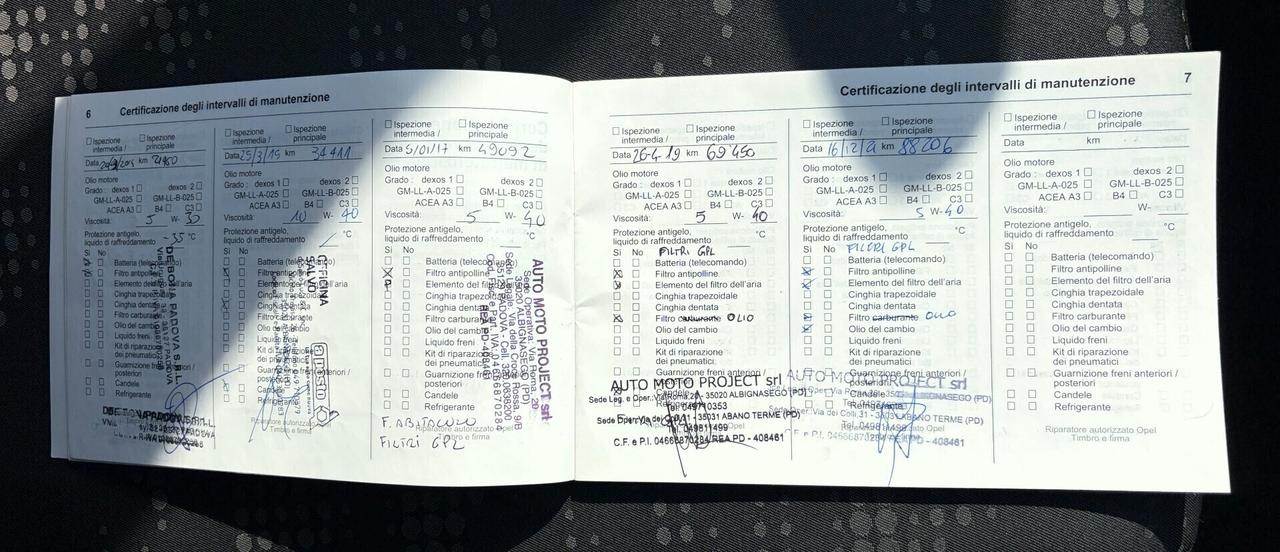 6 Certificazione degli intervalli di manutenzione
☐ Ispezione intermedia / ☐ Ispezione principale
Data km
Olio motore
Grado : dexos 1 ☐ dexos 2 ☐
GM-LL-A-025 ☐ GM-LL-B-025 ☐
ACEA A3 ☐ B4 ☐ C3 ☐
Viscosità: 5 W- 30
Protezione antigelo,
liquido di raffreddamento -35 °C
Sì No
Batteria (telecomando)
Filtro antipolline
Elemento del filtro dell'aria
Cinghia trapezoidale
Cinghia dentata
Filtro carburante
Olio del cambio
Liquido freni
Kit di riparazione
dei pneumatici
Guarnizione freni anteriori /
posteriori
Candele
Refrigerante
☐ Ispezione intermedia / ☐ Ispezione principale
Data 25/3/15 km 34411
Olio motore
Grado : dexos 1 ☐ dexos 2 ☐
GM-LL-A-025 ☐ GM-LL-B-025 ☐
ACEA A3 ☐ B4 ☐ C3 ☐
Viscosità: 10 W- 40
Protezione antigelo,
liquido di raffreddamento °C
Sì No
Batteria (telecomando)
Filtro antipolline
Elemento del filtro dell'aria
Cinghia trapezoidale
Cinghia dentata
Filtro carburante
Olio del cambio
Liquido freni
Kit di riparazione
dei pneumatici
Guarnizione freni anteriori /
posteriori
Candele
Refrigerante
☐ Ispezione intermedia / ☐ Ispezione principale
Data 5/01/17 km 49092
Olio motore
Grado : dexos 1 ☐ dexos 2 ☐
GM-LL-A-025 ☐ GM-LL-B-025 ☐
ACEA A3 ☐ B4 ☐ C3 ☐
Viscosità: 5 W- 40
Protezione antigelo,
liquido di raffreddamento °C
Sì No
Batteria (telecomando)
Filtro antipolline
Elemento del filtro dell'aria
Cinghia trapezoidale
Cinghia dentata
Filtro carburante
Olio del cambio
Liquido freni
Kit di riparazione
dei pneumatici
Guarnizione freni anteriori /
posteriori
Candele
Refrigerante
AUTO MOTO PROJECT srl
F. ABITACOLO
FILTRI GPL
Riparatore autorizzato Opel
Timbro e firma
Certificazione degli intervalli di manutenzione 7
☐ Ispezione intermedia / ☐ Ispezione principale
Data 26-4-19 km 69450
Olio motore
Grado : dexos 1 ☐ dexos 2 ☐
GM-LL-A-025 ☐ GM-LL-B-025 ☐
ACEA A3 ☐ B4 ☐ C3 ☐
Viscosità: 5 W- 40
Protezione antigelo,
liquido di raffreddamento °C
Sì No FILTRI GPL
Batteria (telecomando)
Filtro antipolline
Elemento del filtro dell'aria
Cinghia trapezoidale
Cinghia dentata
Filtro carburante OLIO
Olio del cambio
Liquido freni
Kit di riparazione
dei pneumatici
Guarnizione freni anteriori /
AUTO MOTO PROJECT srl
Sede Leg. e Oper. Via Roma 20 - 35020 ALBIGNASEGO (PD)
Tel. 049710353
Sede Oper. Via dei Colli 31 - 35031 ABANO TERME (PD)
Tel. 049811499
C.F. e P.I. 04666870284 REA PD - 408461
☐ Ispezione intermedia / ☐ Ispezione principale
Data km 88206
Olio motore
Grado : dexos 1 ☐ dexos 2 ☐
GM-LL-A-025 ☐ GM-LL-B-025 ☐
ACEA A3 ☐ B4 ☐ C3 ☐
Viscosità: 5 W- 40
Protezione antigelo,
liquido di raffreddamento °C
Sì No FILTRI GPL
Batteria (telecomando)
Filtro antipolline
Elemento del filtro dell'aria
Cinghia trapezoidale
Cinghia dentata
Filtro carburante OLIO
Olio del cambio
Liquido freni
Kit di riparazione
dei pneumatici
Guarnizione freni anteriori /
posteriori
Candele
Refrigerante
AUTO MOTO PROJECT srl
Riparatore autorizzato Opel
Timbro e firma
☐ Ispezione intermedia / ☐ Ispezione principale
Data km
Olio motore
Grado : dexos 1 ☐ dexos 2 ☐
GM-LL-A-025 ☐ GM-LL-B-025 ☐
ACEA A3 ☐ B4 ☐ C3 ☐
Viscosità: W-
Protezione antigelo,
liquido di raffreddamento °C
Sì No
☐ ☐ Batteria (telecomando)
☐ ☐ Filtro antipolline
☐ ☐ Elemento del filtro dell'aria
☐ ☐ Cinghia trapezoidale
☐ ☐ Cinghia dentata
☐ ☐ Filtro carburante
☐ ☐ Olio del cambio
☐ ☐ Liquido freni
☐ ☐ Kit di riparazione
dei pneumatici
☐ ☐ Guarnizione freni anteriori /
posteriori
☐ ☐ Candele
☐ ☐ Refrigerante
Riparatore autorizzato Opel
Timbro e firma